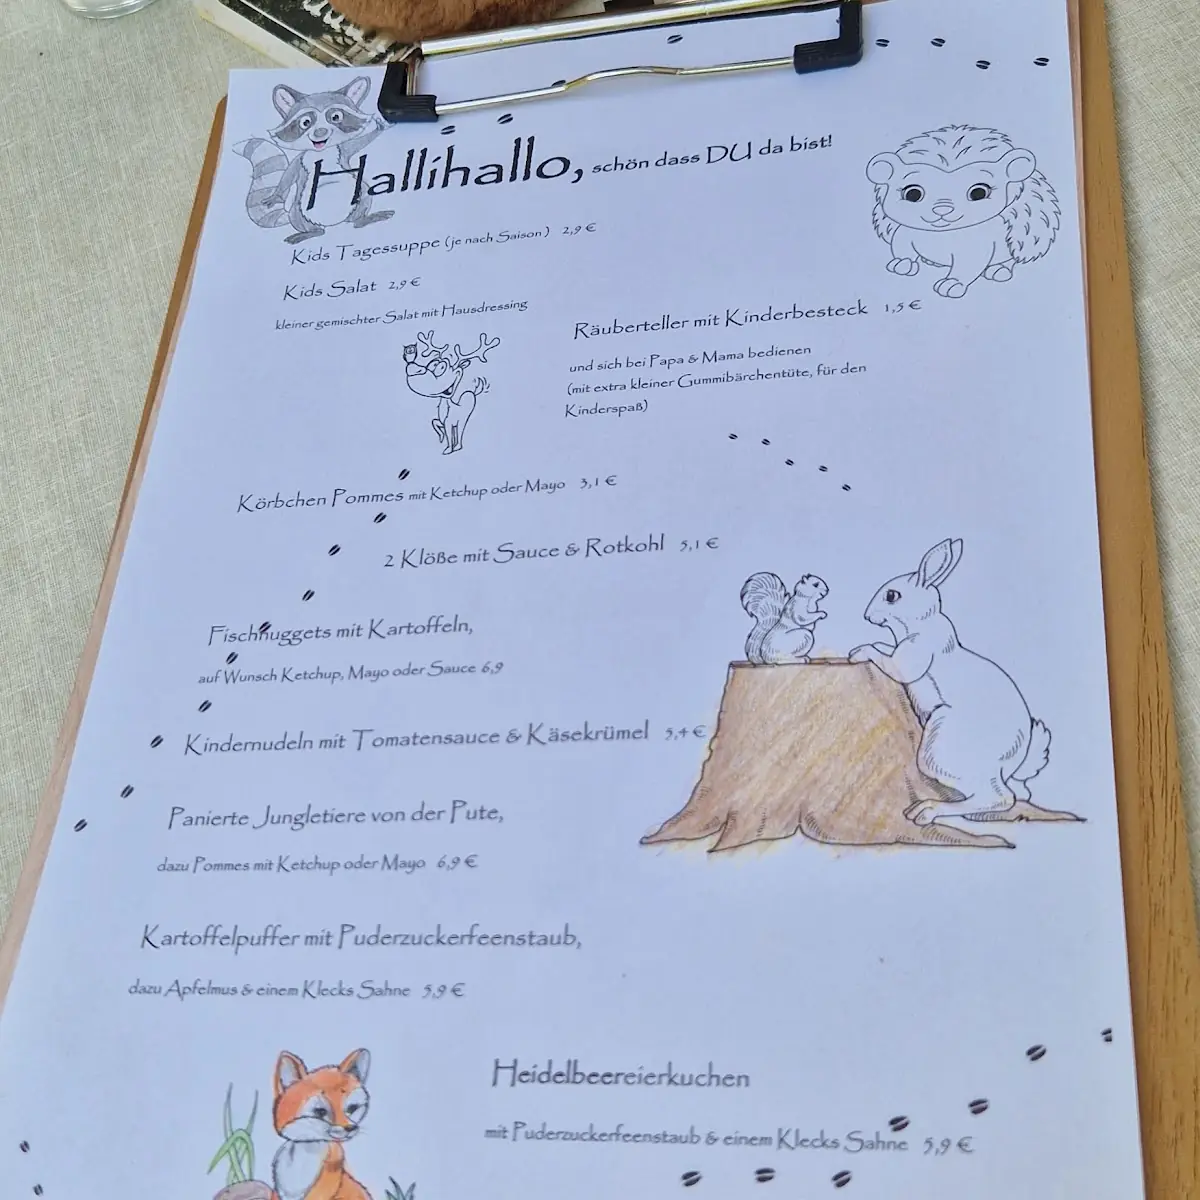 Hallihallo, schön dass DU da bist!
Kids Tagessuppe (je nach Saison) 2,9 €
Kids Salat 2,9 €
kleiner gemischter Salat mit Hausdressing
Räuberteller mit Kinderbesteck 1,5 €
und sich bei Papa & Mama bedienen
(mit extra kleiner Gummibärchentüte, für den
Kinderspaß)
Körbchen Pommes mit Ketchup oder Mayo 3,1 €
2 Klöße mit Sauce & Rotkohl 5,1 €
Fischnuggets mit Kartoffeln,
auf Wunsch Ketchup, Mayo oder Sauce 6,9
Kindernudeln mit Tomatensauce & Käsekrümel 5,4 €
Panierte Jungletiere von der Pute,
dazu Pommes mit Ketchup oder Mayo 6,9 €
Kartoffelpuffer mit Puderzuckerfeenstaub,
dazu Apfelmus & einem Klecks Sahne 5,9 €
Heidelbeereierkuchen
mit Puderzuckerfeenstaub & einem Klecks Sahne 5,9 €